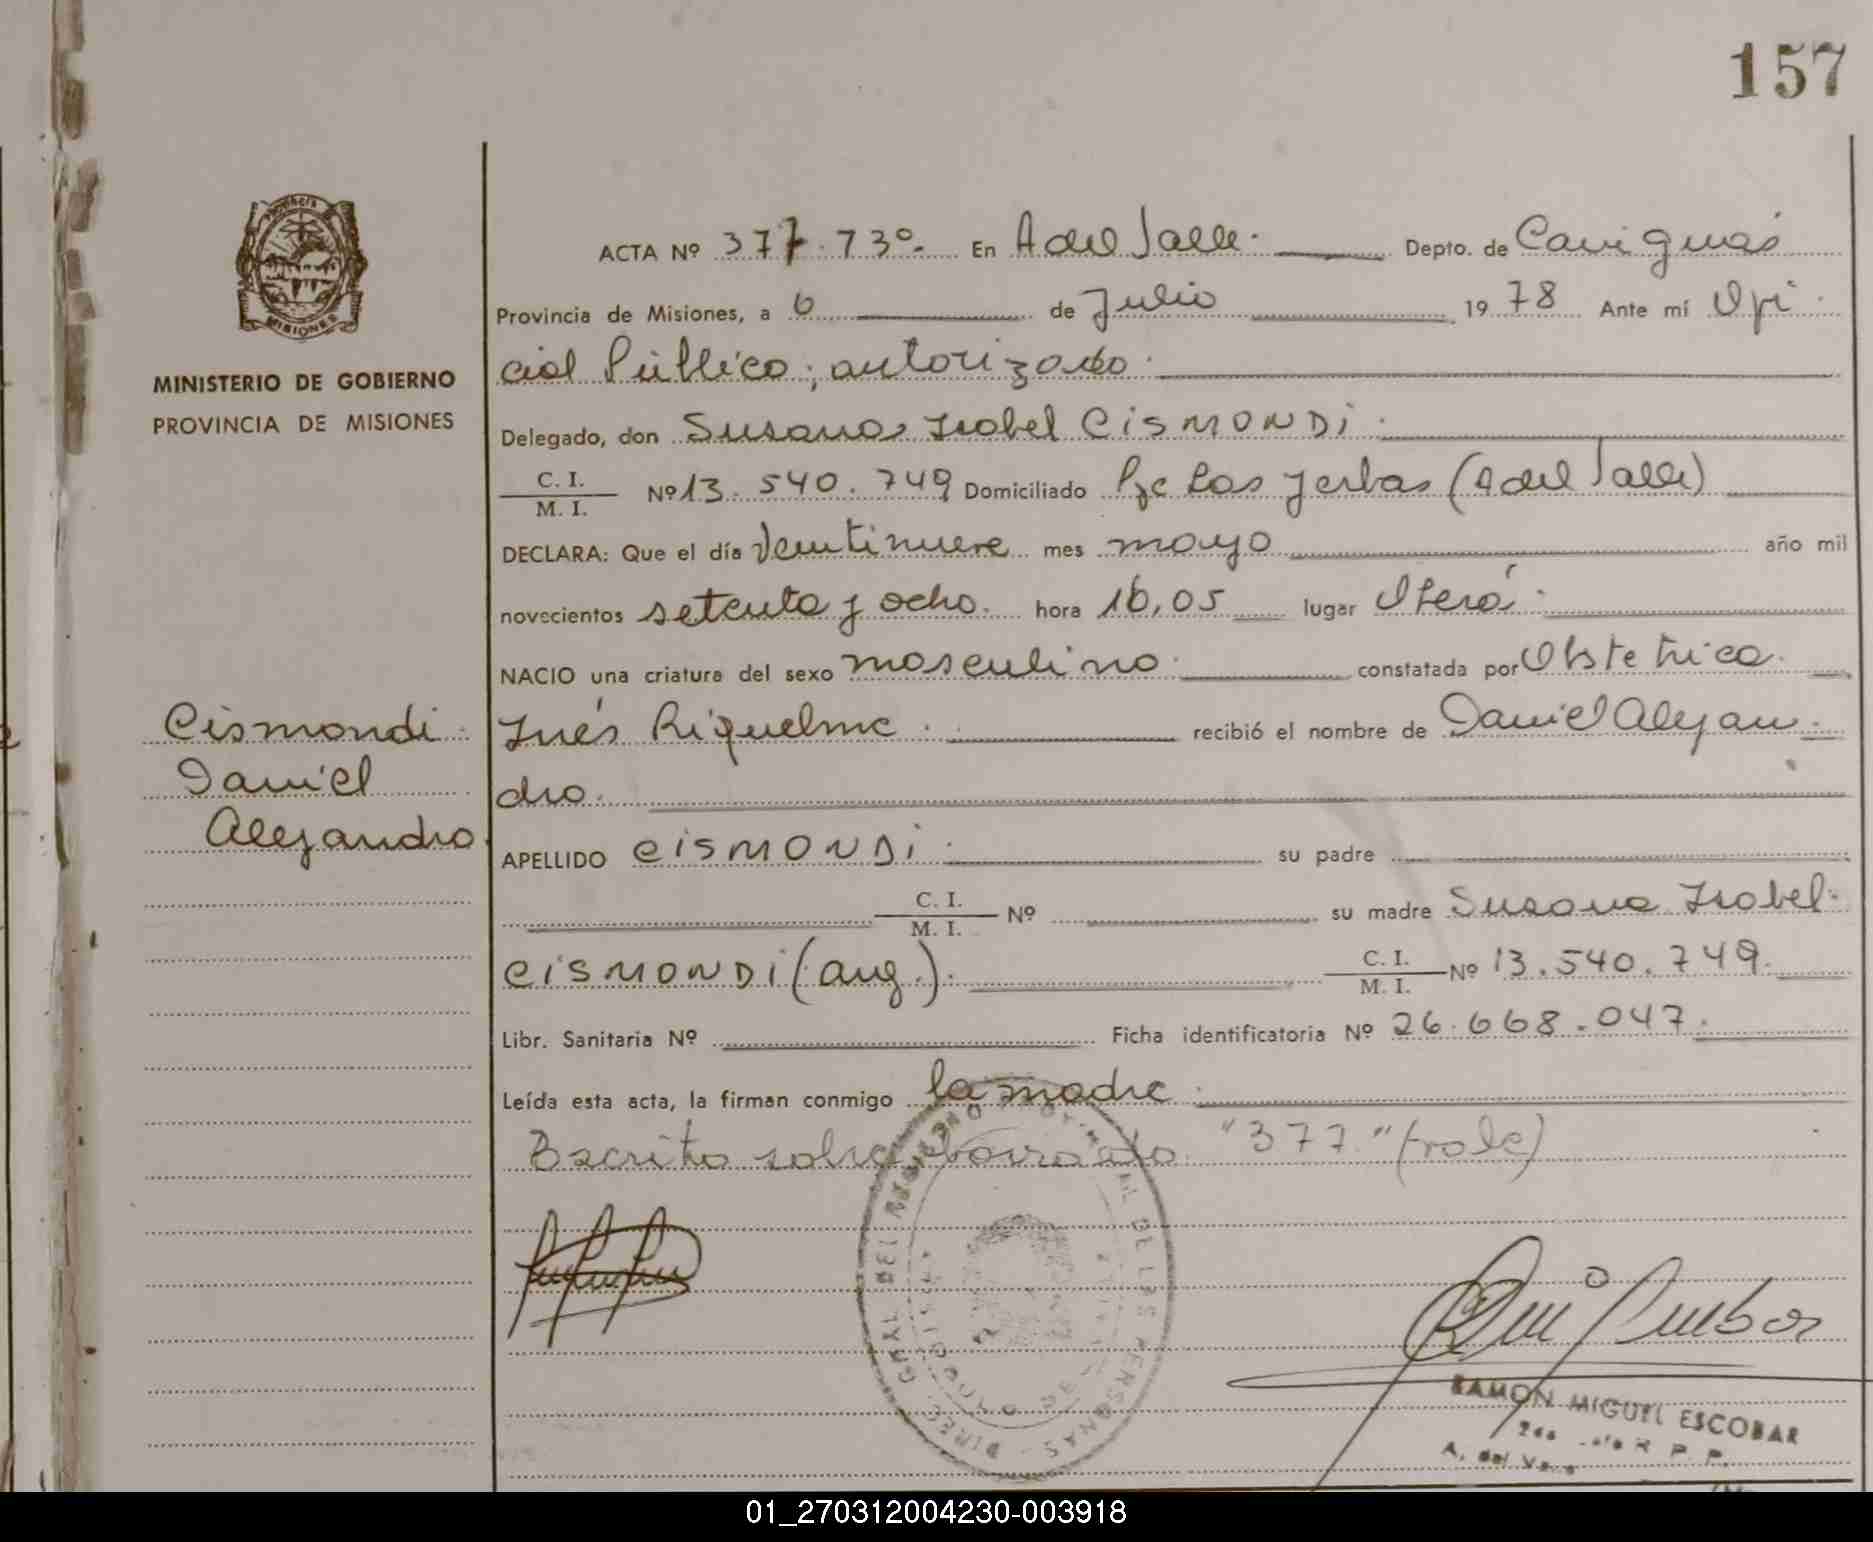 157
PROVINCIA
MISIONES
MINISTERIO DE GOBIERNO
PROVINCIA DE MISIONES
ACTA Nº 377.73º. En A del Valle. Depto. de Cainguás
Provincia de Misiones, a 6 de Julio 1978 Ante mí Ofi
cial Público, autorizado.
Delegado, don Susana Isabel CISMONDI.
C. I. / M. I. Nº 13.540.749 Domiciliado Pje Las Yerbas (A del Valle)
DECLARA: Que el día Veintinueve mes mayo año mil
novecientos setenta y ocho. hora 16,05 lugar Oberá.
NACIO una criatura del sexo masculino. constatada por Obstetrica.
Inés Riquelme. recibió el nombre de Daniel Alejan
dro.
APELLIDO CISMONDI. su padre
C. I. / M. I. Nº su madre Susana Isabel
CISMONDI (arg.). C. I. / M. I. Nº 13.540.749.
Libr. Sanitaria Nº Ficha identificatoria Nº 26.668.047.
Leída esta acta, la firman conmigo la madre.
Escrito sobre borrado "377" (vale)
Cismondi
Daniel
Alejandro
DIREC. GRAL. DEL REGISTRO PROVINCIAL DE LAS PERSONAS
RAMON MIGUEL ESCOBAR
R. P. P.
A. del Valle
01_270312004230-003918